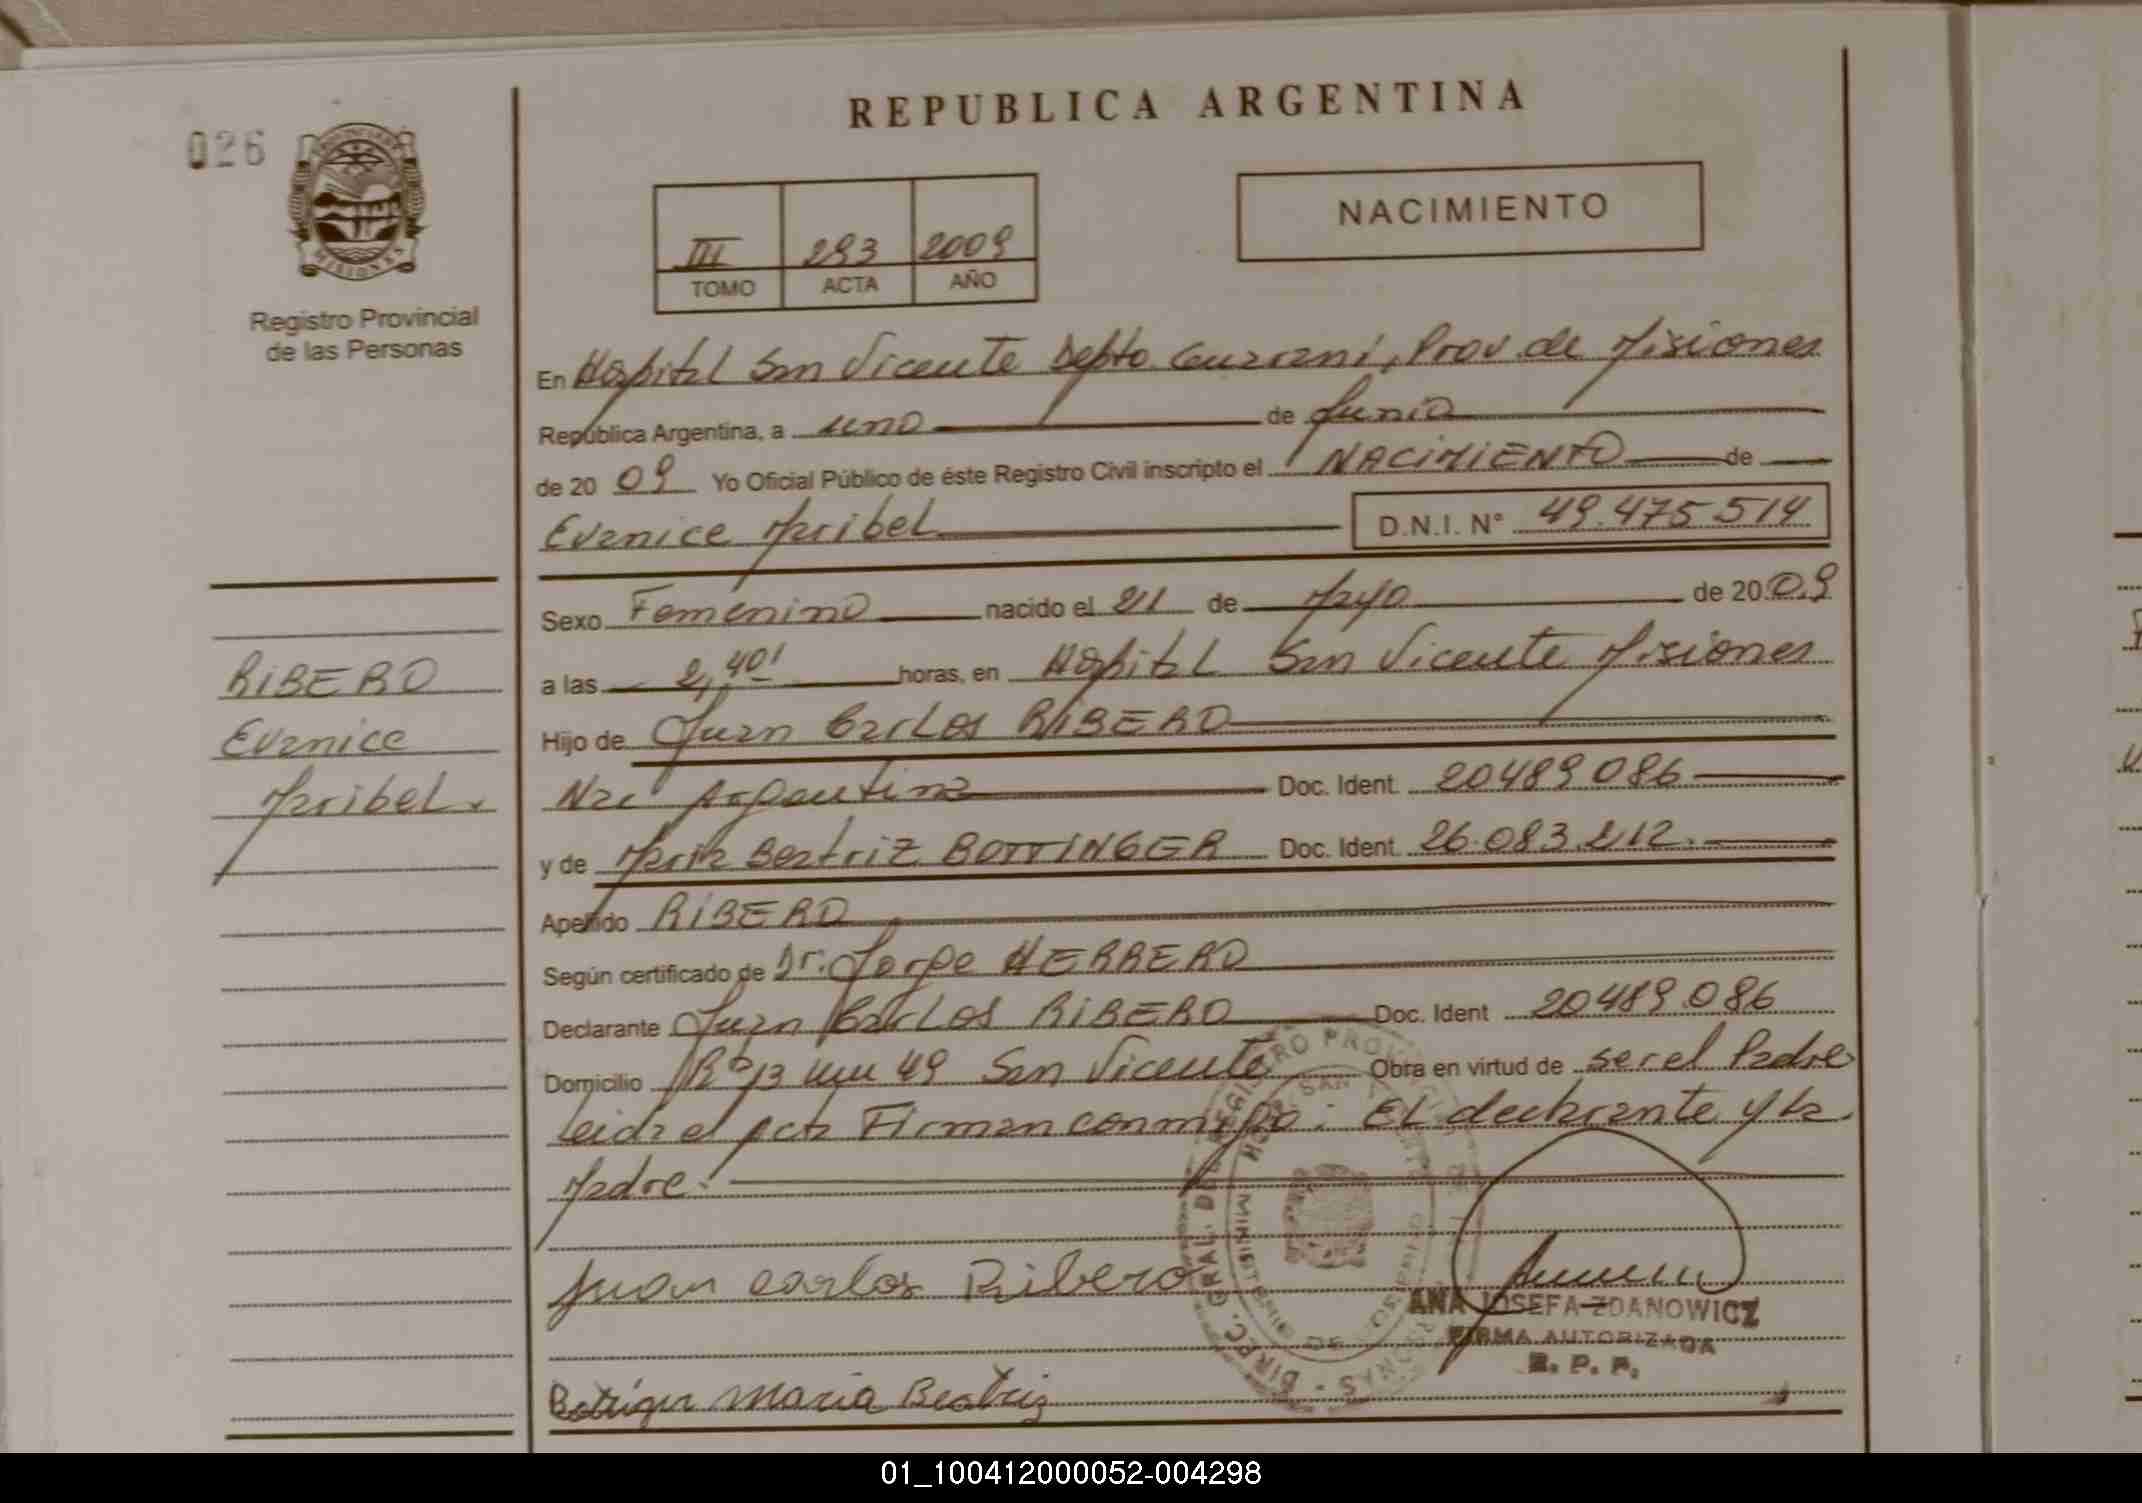 REPUBLICA ARGENTINA
026
NACIMIENTO
III 293 2009
TOMO ACTA AÑO
Registro Provincial
de las Personas
En Hospital San Vicente Depto. Guarani, Prov. de Misiones
República Argentina, a uno de Junio
de 2009 Yo Oficial Público de éste Registro Civil inscripto el NACIMIENTO de
Evanice Maribel D.N.I. N° 49.475.514
Sexo Femenino nacido el 21 de Mayo de 2009
a las 2,40' horas, en Hospital San Vicente Misiones
RIBERO
Evanice
Maribel.
Hijo de Juan Carlos RIBERO
Nac Argentina Doc. Ident. 20489.086
y de Maria Beatriz BOTTINGER Doc. Ident. 26.083.212.
Apellido RIBERO
Según certificado de Dr. Jorge HERRERO
Declarante Juan Carlos RIBERO Doc. Ident 20489.086
Domicilio 49 San Vicente Obra en virtud de ser el Padre
Leida el acta Firman conmigo: El declarante y la
Madre.
Juan Carlos Ribero
ANA JOSEFA ZDANOWICZ
FIRMA AUTORIZADA
R. P. P.
Maria Beatriz
01_100412000052-004298